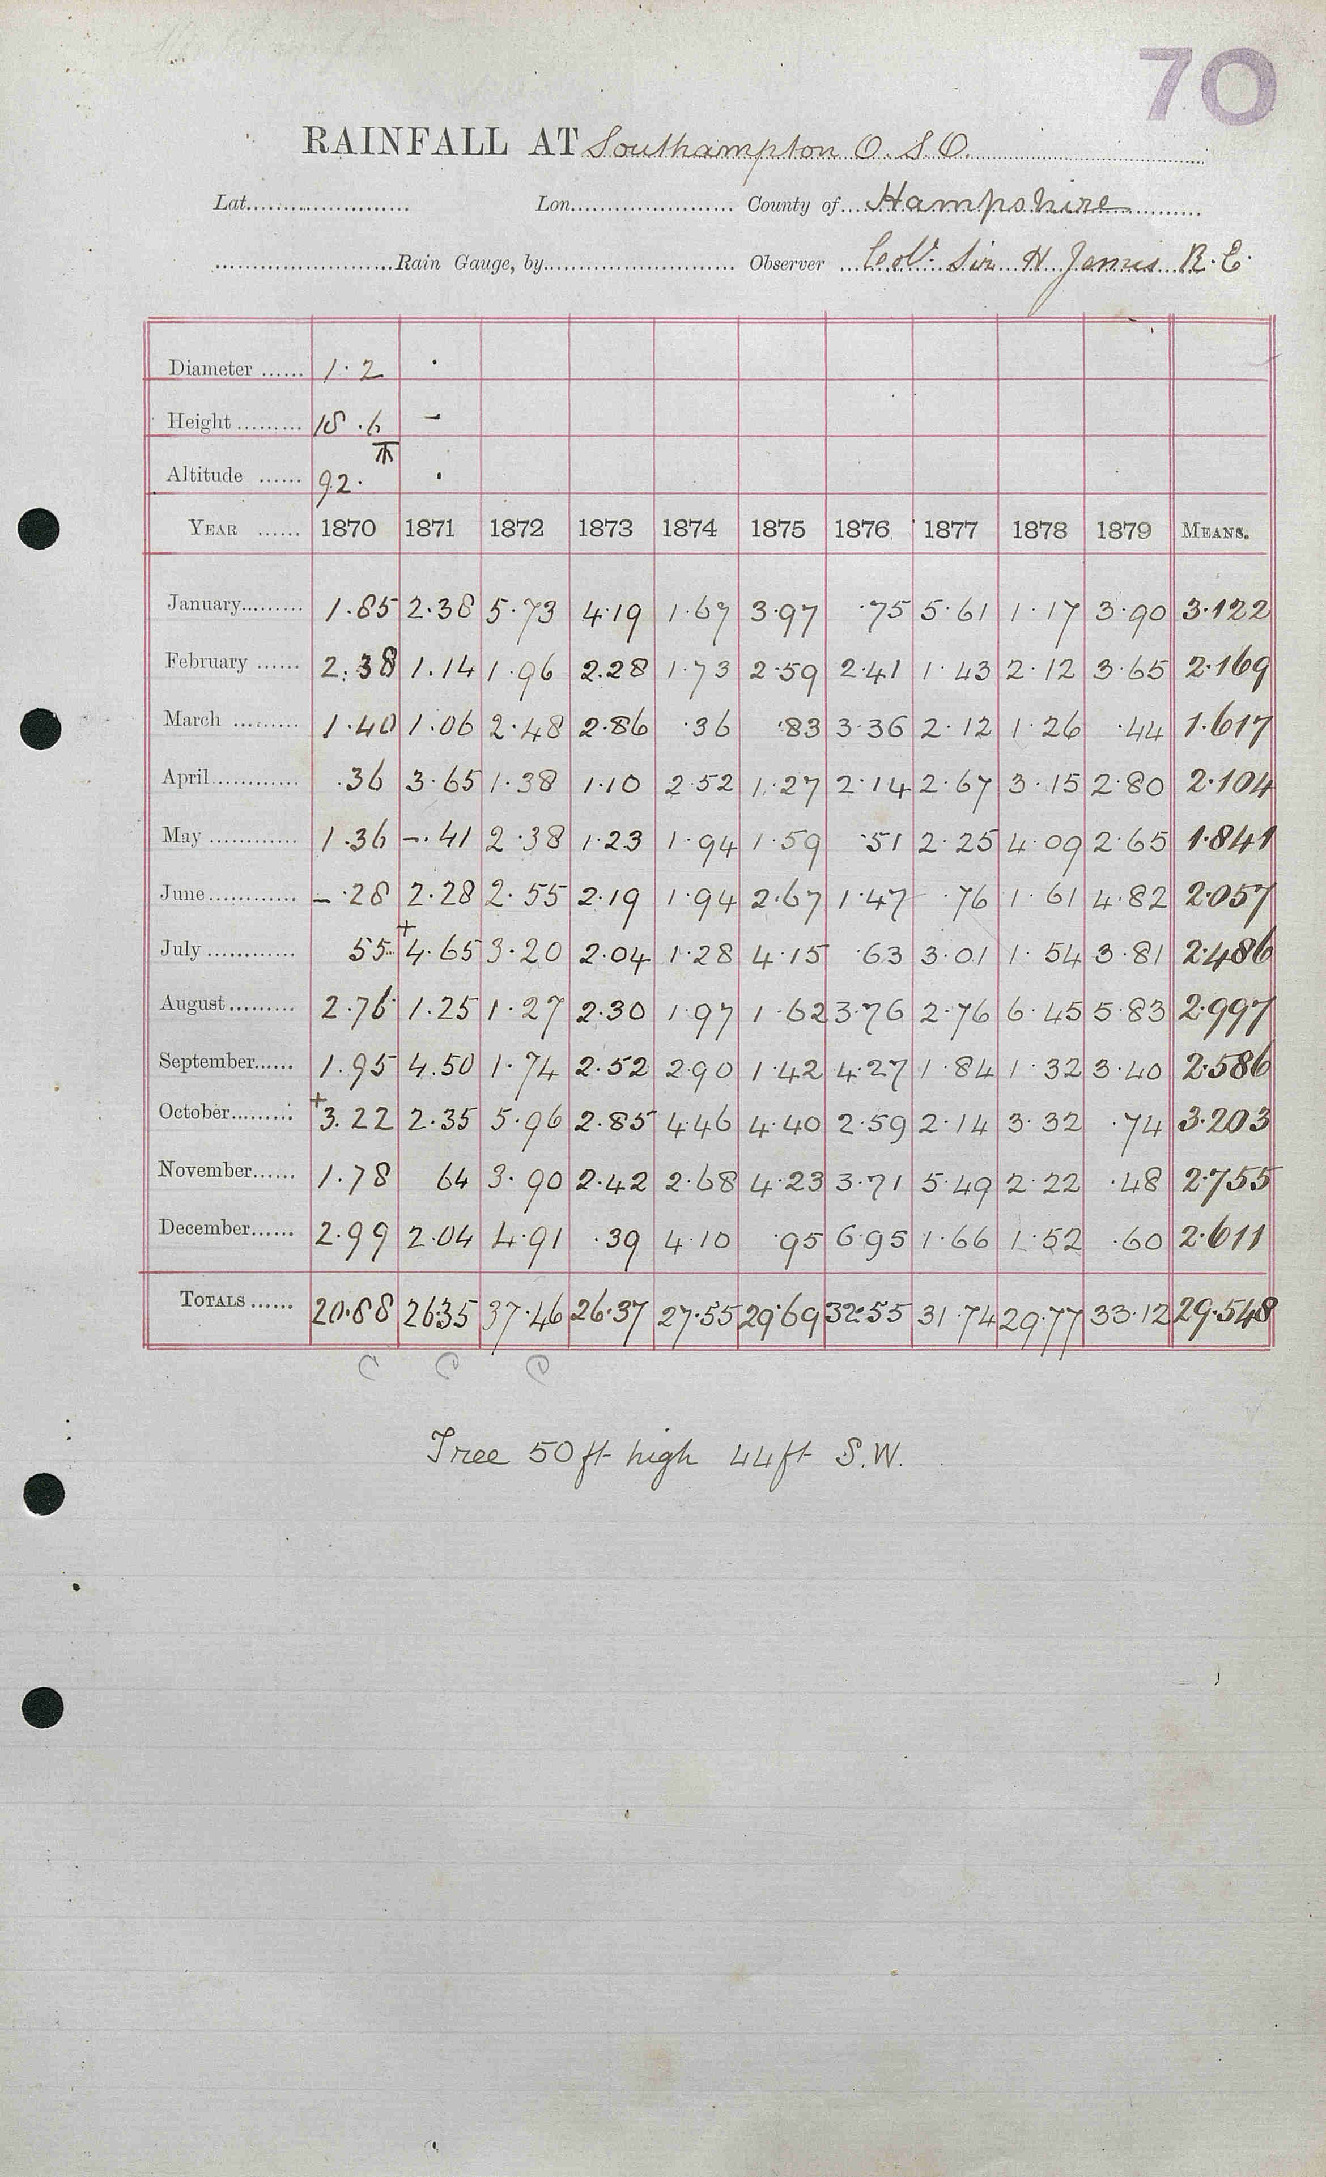 70
RAINFALL AT Southampton O.S.O.
Lat. Lon. County of Hampshire
Rain Gauge, by Observer Col. Sir H James R.E.
Diameter 1.2 .
Height 18.6 -
Altitude 92. .
YEAR 1870 1871 1872 1873 1874 1875 1876 1877 1878 1879 MEANS.
January 1.85 2.38 5.73 4.19 1.67 3.97 .75 5.61 1.17 3.90 3.122
February 2.38 1.14 1.96 2.28 1.73 2.59 2.41 1.43 2.12 3.65 2.169
March 1.40 1.06 2.48 2.86 .36 .83 3.36 2.12 1.26 .44 1.617
April .36 3.65 1.38 1.10 2.52 1.27 2.14 2.67 3.15 2.80 2.104
May 1.36 -.41 2.38 1.23 1.94 1.59 .51 2.25 4.09 2.65 1.841
June -.28 2.28 2.55 2.19 1.94 2.67 1.47 .76 1.61 4.82 2.057
July 55 +4.65 3.20 2.04 1.28 4.15 .63 3.01 1.54 3.81 2.486
August 2.76 1.25 1.27 2.30 1.97 1.62 3.76 2.76 6.45 5.83 2.997
September 1.95 4.50 1.74 2.52 2.90 1.42 4.27 1.84 1.32 3.40 2.586
October +3.22 2.35 5.96 2.85 4.46 4.40 2.59 2.14 3.32 .74 3.203
November 1.78 64 3.90 2.42 2.68 4.23 3.71 5.49 2.22 .48 2.755
December 2.99 2.04 4.91 .39 4.10 .95 6.95 1.66 1.52 .60 2.611
TOTALS 20.88 26.35 37.46 26.37 27.55 29.69 32.55 31.74 29.77 33.12 29.548
C C C
Tree 50ft high 44ft S.W.